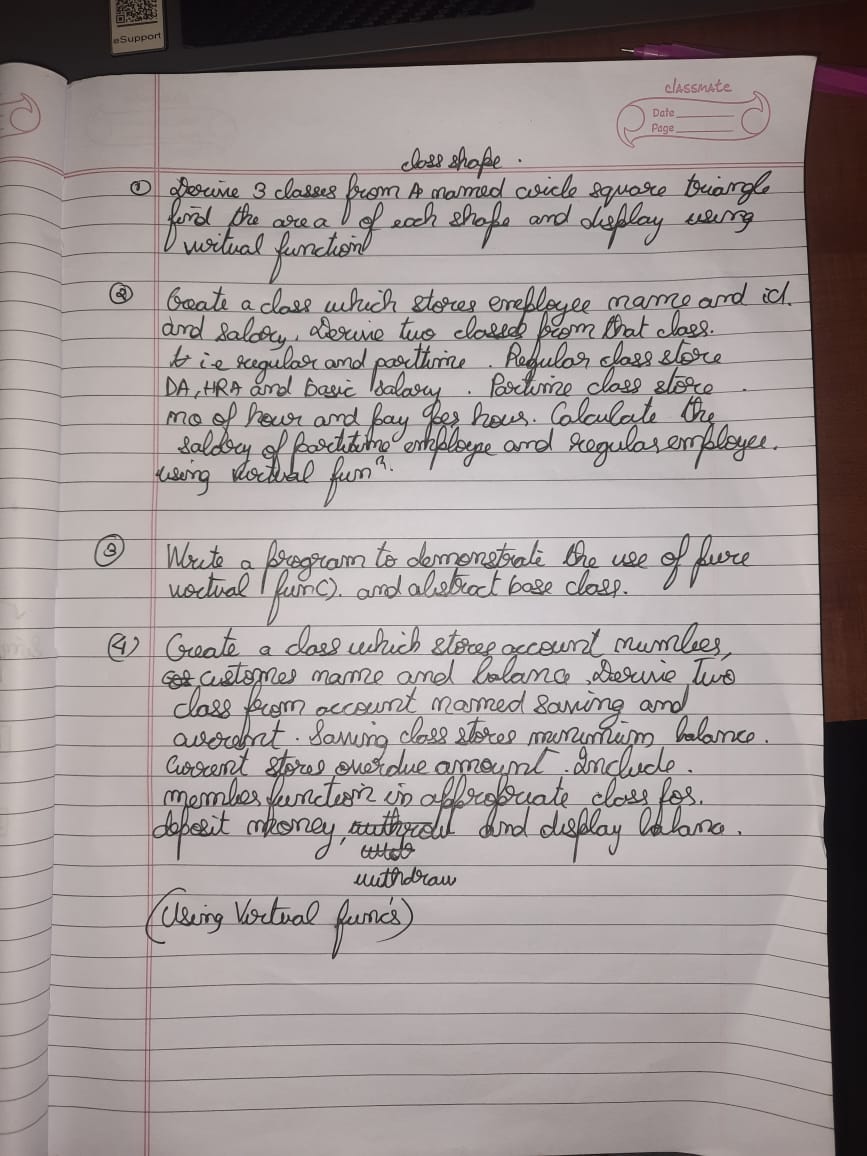 eSupport
classmate
Date
Page
class shape.
① Derive 3 classes from A named circle square triangle
find the area of each shape and display using
virtual function
② Create a class which stores employee name and id.
and salary. Derive two classes from that class.
i.e regular and parttime. Regular class store
DA, HRA and basic salary. Partime class store
no of hour and pay per hour. Calculate the
salary of parttime employee and regular employee.
using virtual funⁿ.
③ Write a program to demonstrate the use of pure
virtual func). and abstract base class.
④ Create a class which stores account number,
customer name and balance. Derive Two
class from account named saving and
. Saving class stores minimum balance.
Current stores overdue amount. Include.
member function in appropriate class for.
deposit money, and display balance.
withdraw
(Using Virtual func's)